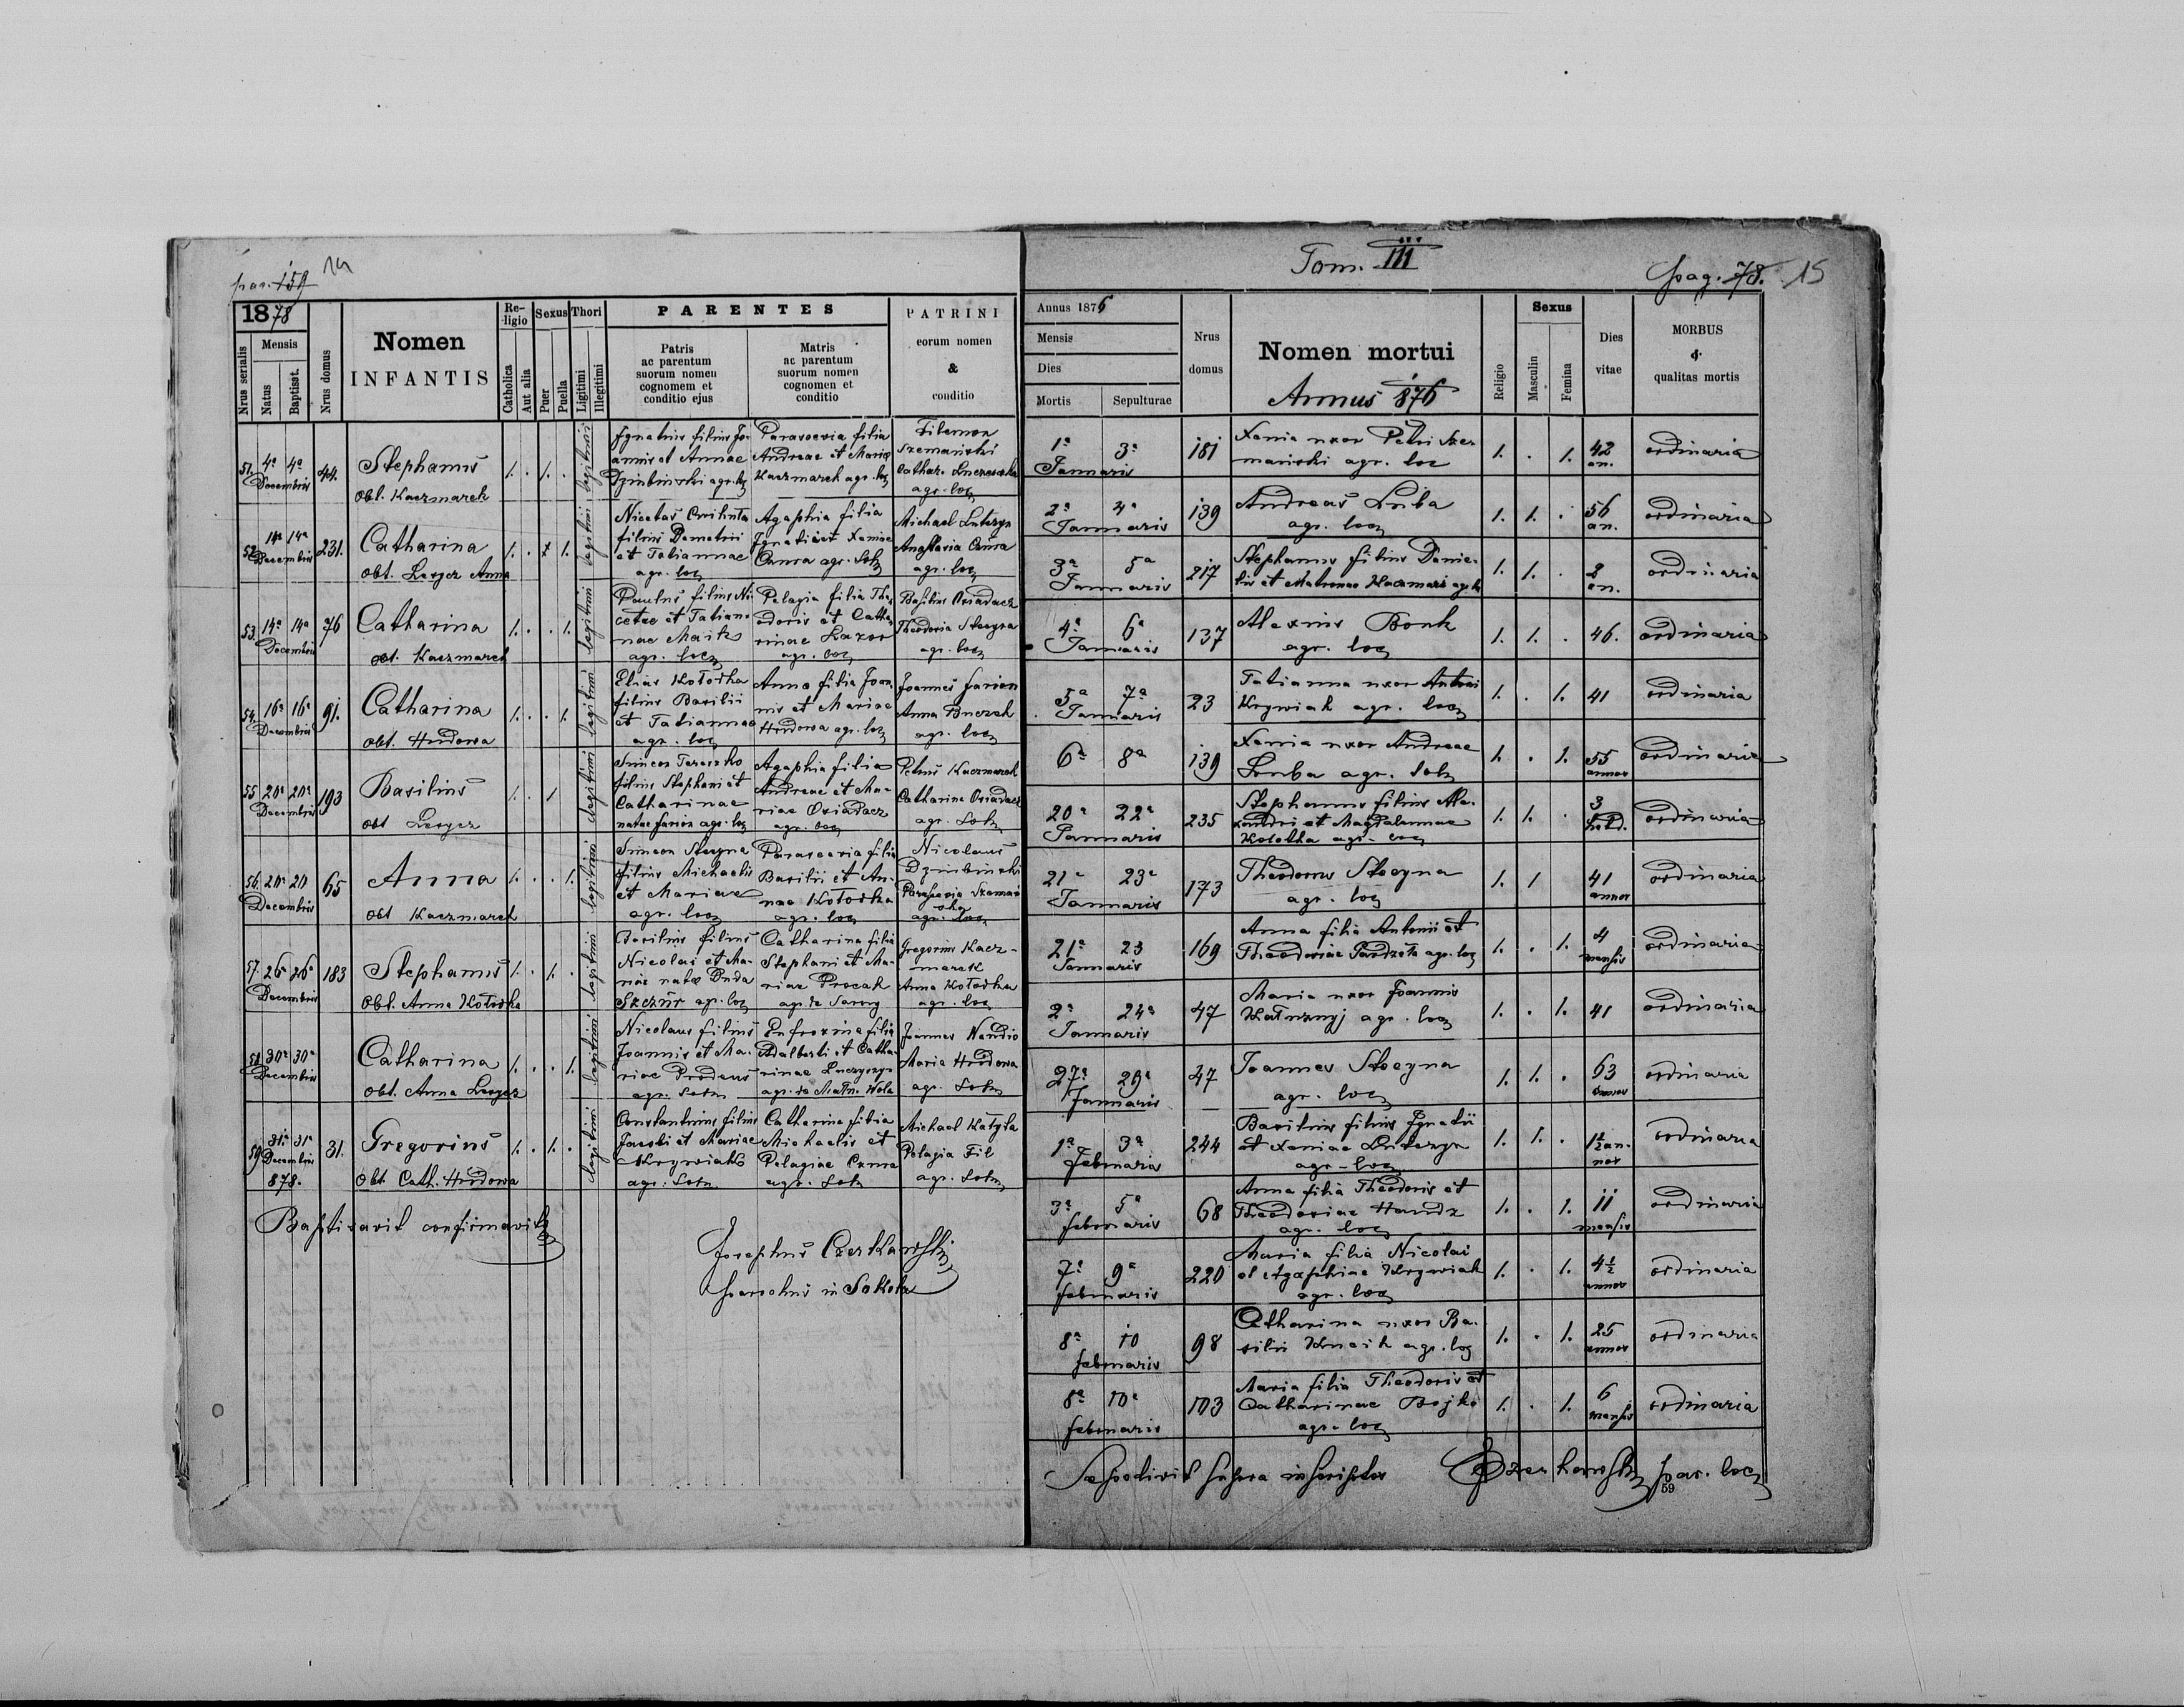 pag. 159 14
1878
Nrus serialis
Mensis
Natus
Baptisat.
Nrus domus
Nomen
INFANTIS
Re-
ligio
Catholica
Aut alia
Sexus
Puer
Puella
Thori
Legitimi
Illegitimi
PARENTES
Patris
ac parentum
suorum nomen
cognomem et
conditio ejus
Matris
ac parentum
suorum nomen
cognomen et
conditio
PATRINI
eorum nomen
&
conditio
51. 4a 4a
Decembris
44.
Stephanus
obt. Kaczmarek
1. . 1. .
legitimi
Ignatius filius Jo-
annis et Annae
Dziubinski agr. loc
Parascevia filia
Andreae et Mariae
Kaczmarek agr. loc
Filemon
Szemański
Cathar.
agr. loc
52. 14a 14a
Decembris
231.
Catharina
obt. Lesycz Anna
1. . 1.
legitimi
Nicetas
filius Demetrii
et Tatiannae
agr. loc
Agaphia filia
Ignatii et Xeniae
agr. Sok
Michael
Anastasia
agr. loc
53. 14a 14a
Decembris
76
Catharina
obt. Kaczmarek
1. . . 1.
legitimi
Paulus filius Ni-
cetae et Tatian-
nae
agr. loc
Pelagia filia The-
odoris et Catha-
rinae Lazor
agr. loc
Basilius Osiadacz
Theodosia Stecyna
agr. loc
54. 16a 16a
Decembris
91.
Catharina
obt. Hudowa
1. . . 1.
legitimi
Elias Kołodka
filius Basilii
et Tatiannae
agr. loc
Anna filia Joan-
nis et Mariae
Hudowa agr. loc
Joannes
Anna
agr. loc
55 20a 20a
Decembris
193
Basilius
obt Lesycz
1. . 1
legitimi
Simeon
filius Stephani et
Catharinae
natae agr. loc
Agaphia filia
Andreae et Ma-
riae Osiadacz
agr. loc
Petrus Kaczmarek
Catharina Osiadacz
agr. Sok
56. 20a 20
Decembris
65
Anna
obt Kaczmarek
1. . . 1.
legitimi
Simeon Stecyna
filius Michaelis
et Mariae
agr. loc
Parascevia filia
Basilii et An-
nae Kołodka
agr. loc
Nicolaus
Dziubinski
Szemań-
ska
agr. loc
57. 26 26a
Decembris
183
Stephanus
obt. Anna Kołodka
1. . 1. .
legitimi
Basilius filius
Nicolai et Ma-
riae natae
agr. loc
Catharina filia
Stephani et Ma-
riae
agr. de
Gregorius Kacz-
marek
Anna Kołodka
agr. loc
58. 30a 30a
Decembris
Catharina
obt. Anna Lesycz
1. . . 1.
legitimi
Nicolaus filius
Joannis et Ma-
riae
agr. Sok
Eufrozina filia
Adalberti et Catha-
rinae
agr. de Wola
Joannes
Maria Hudowa
agr. Sok
59. 31a 31a
Decembris
878.
31.
Gregorius
obt. Cath. Hudowa
1. . 1. .
legitimi
Constantinus filius
Jacobi et Mariae
Krywiak
agr. Sok
Catharina filia
Michaelis et
Pelagiae
agr. Sok
Michael
Pelagia Fil
agr. Sok
Baptisavit confirmavit
Josephus Czerkawski
parochus in
Tom. III
pag. 78. 15
Annus 1876
Mensis
Dies
Mortis
Sepulturae
Nrus
domus
Nomen mortui
Annus 876
Religio
Sexus
Masculin
Femina
Dies
vitae
MORBUS
&
qualitas mortis
1a 3a
Januaris
181
Xenia uxor Petri Sze-
mański agr. loc
1. . 1.
42
an.
ordinaria
2a 4a
Januaris
139
Andreas Luba
agr. loc
1. 1. .
56
an.
ordinaria
3a 5a
Januaris
217
Stephanus filius Danie-
lis et
1. 1. .
2
an.
ordinaria
4a 6a
Januaris
137
Alexius Bonk
agr. loc
1. 1. .
46.
ordinaria
5a 7a
Januaris
23
Tatianna uxor Antoni
Krywiak agr. loc
1. . 1.
41
ordinaria
6a 8a
139
Xenia uxor Andreae
Luba agr. Sok
1. . 1.
55
annor
ordinaria
20a 22a
Januaris
235
Stephanus filius Ale-
xandri et Magdalennae
Kołodka agr. loc
1. 1. .
3
hebd.
ordinaria
21a 23a
Januaris
173
Theodorus Stecyna
agr. loc
1. 1
41
annor
ordinaria
21a 23
Januaris
169
Anna filia Antonii et
Theodosiae agr. loc
1. . 1.
4
mensis
ordinaria
2a 24a
Januaris
47
Maria uxor Joannis
agr. loc
1. . 1.
41
ordinaria
27a 29a
Januaris
47
Joannes Stecyna
agr. loc
1. 1. .
63
annor
ordinaria
1a 3a
Februaris
244
Basilius filius Ignatii
et Xeniae
agr. loc
1. 1. .
1½ an-
nor
ordinaria
3a 5a
februaris
68
Anna filia Theodoris et
Theodosiae
agr. loc
1. . 1.
11
mensis
ordinaria
7a 9a
februaris
220
Maria filia Nicolai
et Agaphiae Krywiak
agr. loc
1. . 1.
4½
annor
ordinaria
8a 10
februaris
98
Catharina uxor Ba-
silii agr. loc
1. . 1.
25
annor
ordinaria
8a 10a
februaris
103
Maria filia Theodoris et
Catharinae Bojko
agr. loc
1. . 1.
6
mensis
ordinaria
Sepelivit supra inscriptos Czerkawski par. loc
59